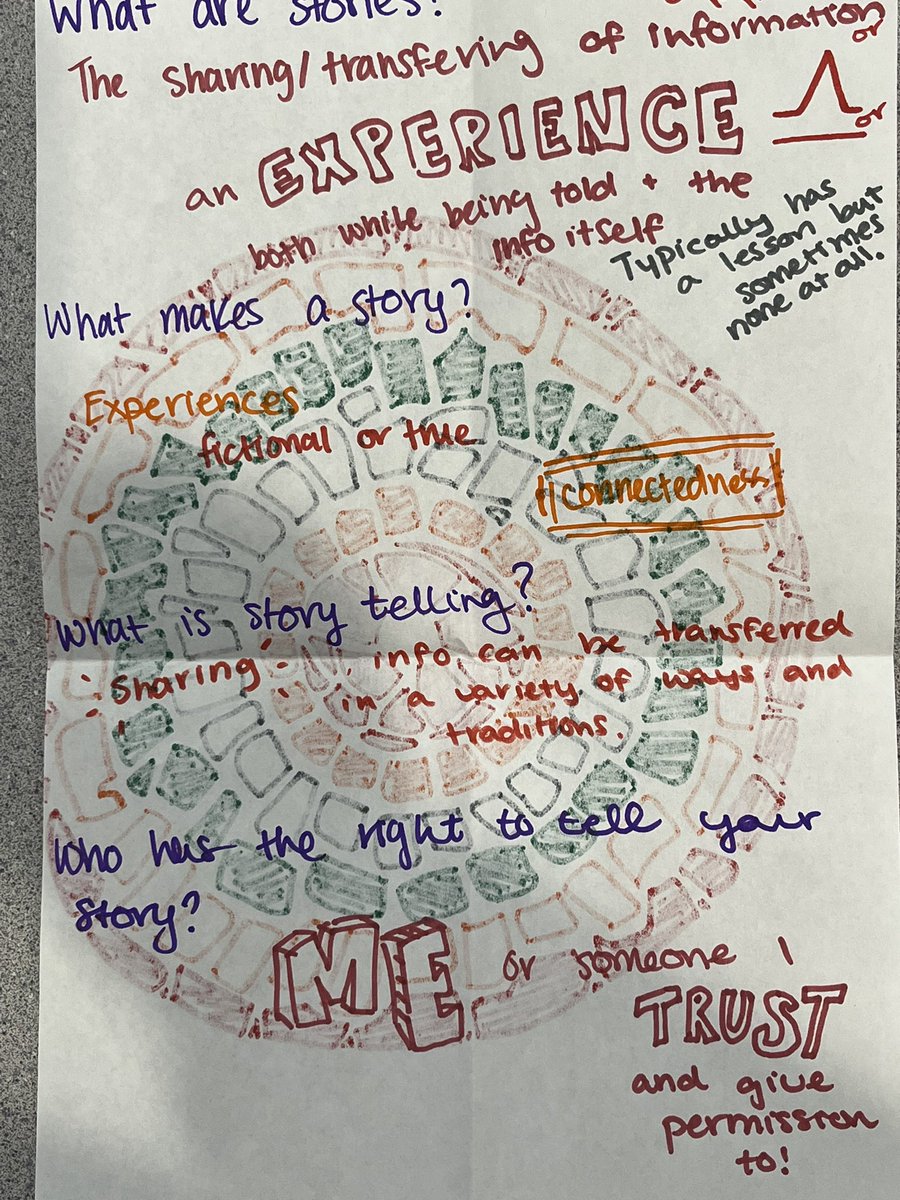 What are stories?
The sharing/transfering of information
or
an EXPERIENCE
or
both while being told + the
info itself
Typically has
a lesson but
sometimes
none at all.
What makes a story?
Experiences
fictional or true
connectedness
What is story telling?
Sharing
info can be transferred
in a variety of ways and
traditions.
Who has the right to tell your
story?
ME or someone I
TRUST
and give
permission
to!